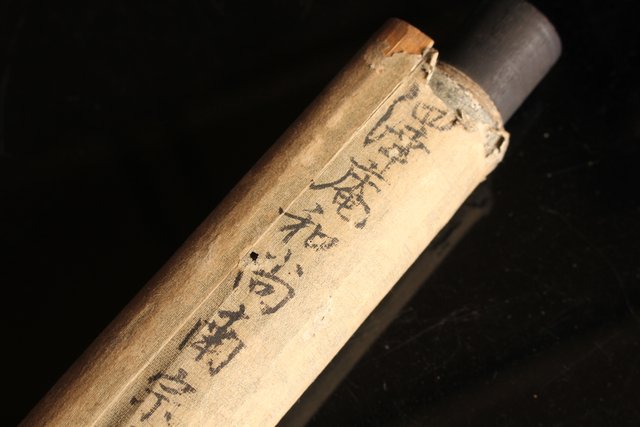 澤庵和尚南宗